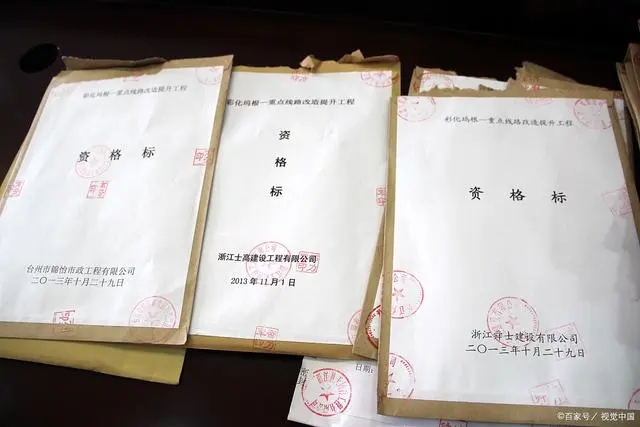 彩化坞根一重点线路改造提升工程
资格标
台州市锦怡市政工程有限公司
二〇一三年十月二十九日
彩化坞根一重点线路改造提升工程
资
格
标
浙江士高建设工程有限公司
2013年11月1日
彩化坞根一重点线路改造提升工程
资格标
浙江舜士建设有限公司
二〇一三年十月二十九日
日期:
©百家号/视觉中国